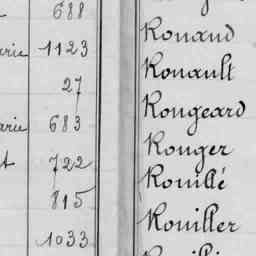 688 Rouaud
1123 Rouault
27 Rougeard
683 Rouger
722 Rouillé
815 Rouiller
1033